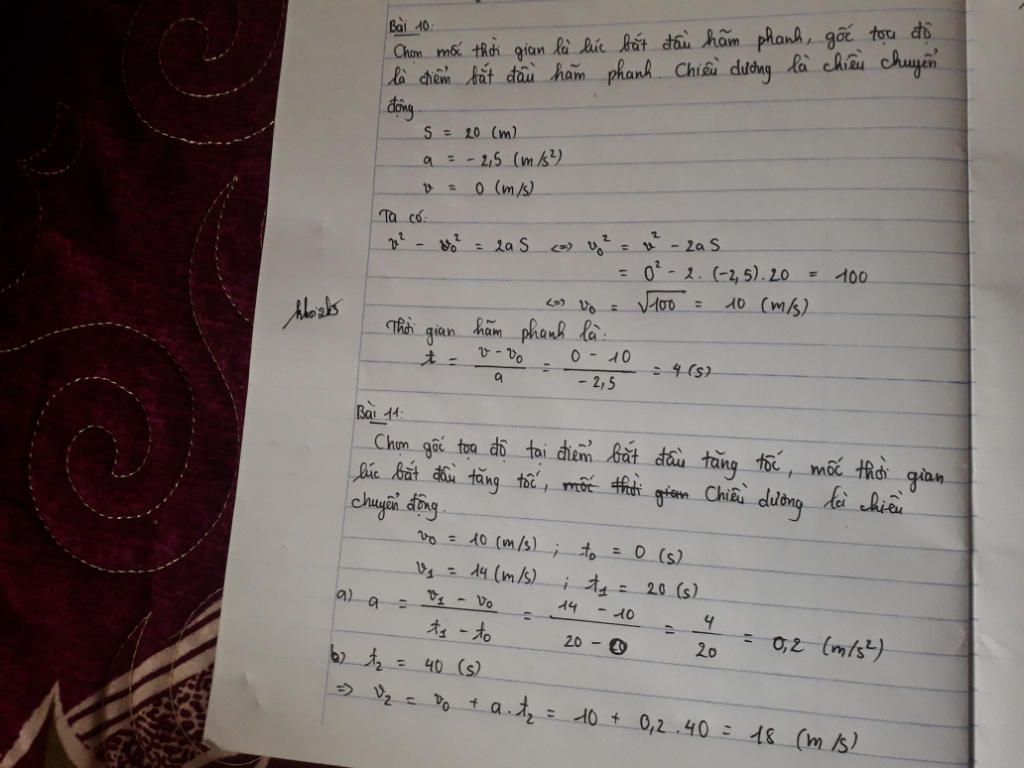 Bài 10:
Chọn mốc thời gian là lúc bắt đầu hãm phanh, gốc tọa độ
là điểm bắt đầu hãm phanh. Chiều dương là chiều chuyển
động.
S = 20 (m)
a = -2,5 (m/s²)
v = 0 (m/s)
Ta có:
v² - v₀² = 2aS <=> v₀² = v² - 2aS
= 0² - 2. (-2,5).20 = 100
<=> v₀ = √100 = 10 (m/s)
Thời gian hãm phanh là:
t = (v - v₀)/a = (0 - 10)/(-2,5) = 4 (s)
Bài 11:
Chọn gốc tọa độ tại điểm bắt đầu tăng tốc, mốc thời gian
lúc bắt đầu tăng tốc, mốc thời gian Chiều dương là chiều
chuyển động.
v₀ = 10 (m/s) ; t₀ = 0 (s)
v₁ = 14 (m/s) ; t₁ = 20 (s)
a) a = (v₁ - v₀)/(t₁ - t₀) = (14 - 10)/(20 - 0) = 4/20 = 0,2 (m/s²)
b) t₂ = 40 (s)
=> v₂ = v₀ + a.t₂ = 10 + 0,2.40 = 18 (m/s)